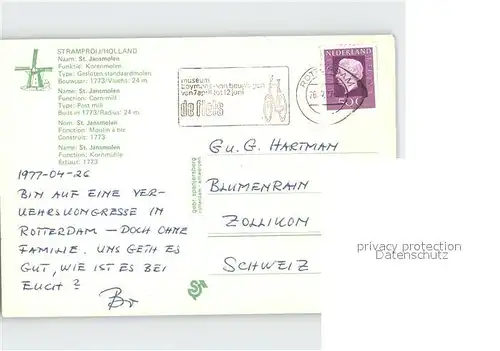 STRAMPROIJ/HOLLAND
Naam: St. Jansmolen
Funktie: Korenmolen
Type: Gesloten standaardmolen
Bouwjaar: 1773/Vlucht: 24 m.
Name: St. Jansmolen
Function: Corn-mill
Type: Post mill
Built in 1773/Radius: 24 m.
Nom: St. Jansmolen
Fonction: Moulin à blé
Construit: 1773
Name: St. Jansmolen
Funktion: Kornmühle
Erbaut: 1773
museum
boymans-van beuningen
van 7 april tot 12 juni
de fiets
NEDERLAND
50c
1977-04-26
BIN AUF EINE VER-
KEHRSKONGRESSE IN
ROTTERDAM — DOCH OHNE
FAMILIE. UNS GEHT ES
GUT, WIE IST ES BEI
EUCH?
G. u. G. HARTMAN
BLUMENRAIN
ZOLLIKON
SCHWEIZ
privacy protection
Datenschutz